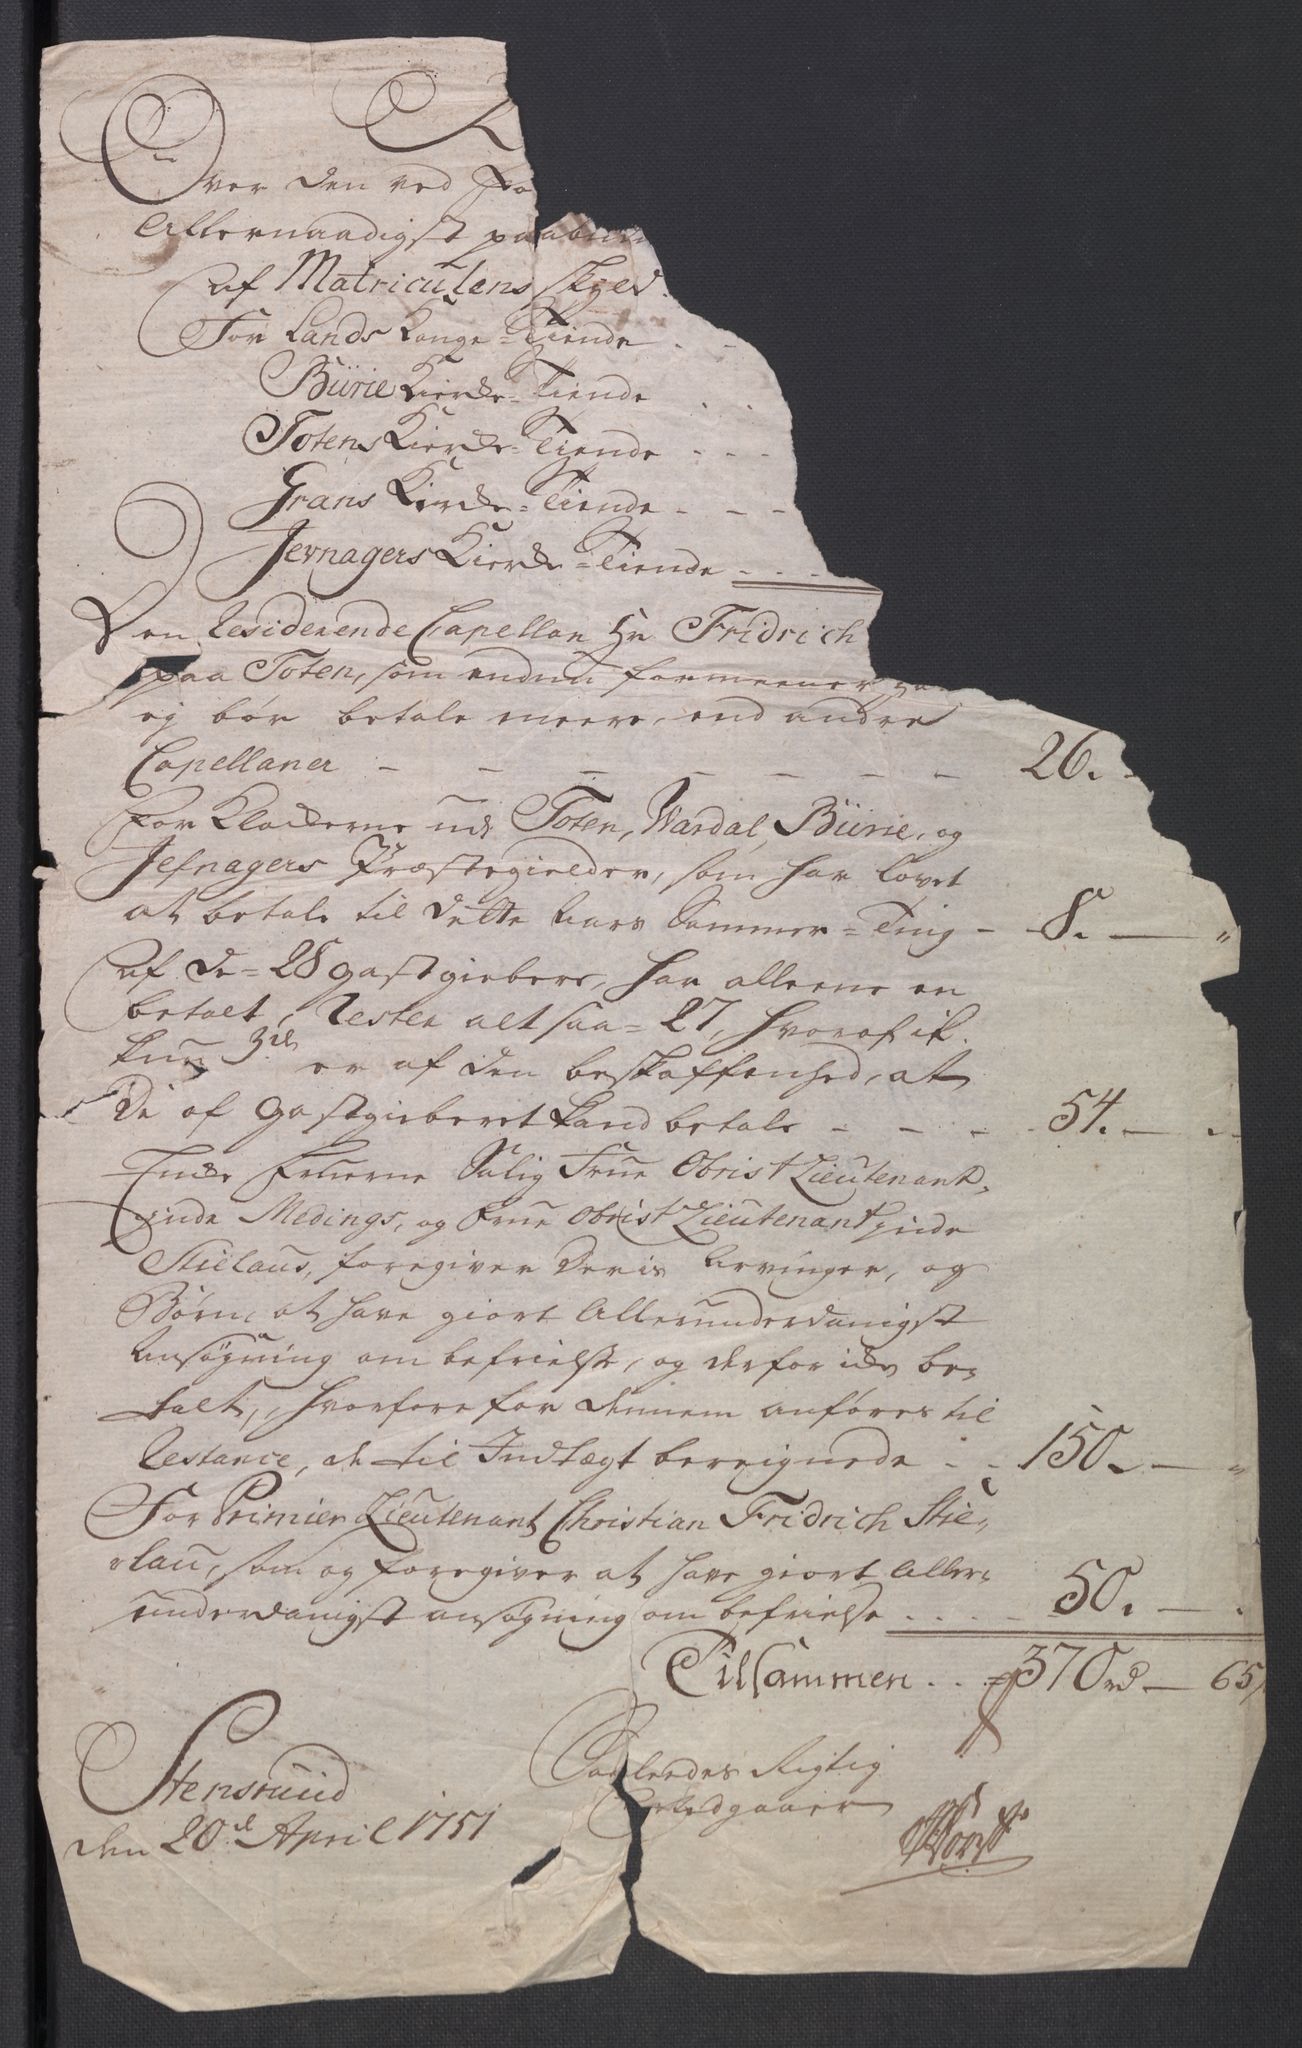 R
Over den ved Fo
Allernaadigst paabu
af Matriculens Skyld.
For Lands Konge-Tiende . -
Biirie Kircke-Tiende . . .
Totens Kircke-Tiende . . . .
Grans Kircke-Tiende - - -
Jevnagers Kircke-Tiende - . . .
Den Residerende Capellan Hr Fridrich
paa Toten, som endnu formeener han
ej bør betale meere, end andre
Capellaner - - - - - - - 26. -
For Klockerne udi Toten, Wardal, Biirie, og
Jefnagers Præstegielder, som har lovet
at betale til dette Aars Sommer-Ting - 8. — "
Af de - 28 gastgiebere, har alleene en
betalt, Rester alt saa - 27, hvoraf ik.
kun 3de er af den beskaffenhed, at
De af gastgieberet kand betale - - - - 54. — -
Encke Fruerne Salig Frue Obrist Lieutenant-
inde Medings, og Frue Obrist Lieutenantinde
Stielaus, foregiver deris Arvinger, og
Børn, at have giort Allerunderdanigst
Ansøgning om befrielse, og derfor icke be-
talt, hvorfore for dennem anføres til
Restance, de til Indtægt bereignede - - 150. — "
For Primier Lieutenant Christian Fridrich Stie-
lau, som og foregiver at have giort Aller-
underdanigst ansøgning om befrielse . . . . 50. — .
Tilsammen . . . 370 rd — 65
Stensruud
den 20de April 1751
Saaledes Rigtig